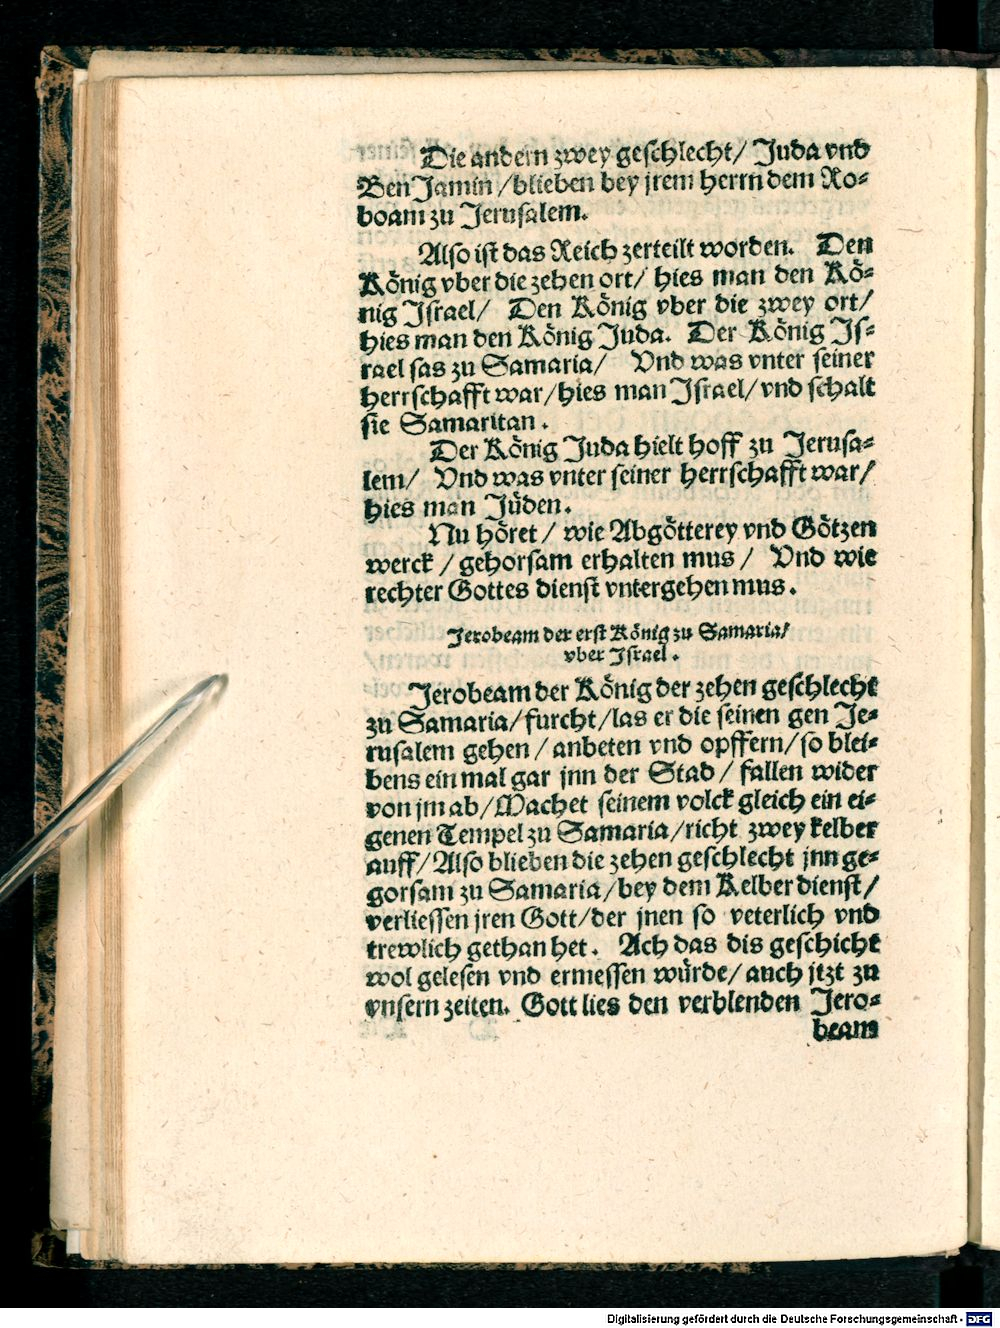 Die andern zwey geschlecht/ Juda vnd
BenJamin /blieben bey jrem herrn dem Ro⸗
boam zu Jerusalem.
Also ist das Reich zerteilt worden. Den
König vber die zehen ort/ hies man den Kö⸗
nig Israel/ Den König vber die zwey ort/
hies man den König Juda. Der König Is⸗
rael sas zu Samaria/ Vnd was vnter seiner
herrschafft war/hies man Israel/vnd schalt
sie Samaritan.
Der König Juda hielt hoff zu Jerusa⸗
lem/ Vnd was vnter seiner herrschafft war/
hies man Jüden.
Nu höret/ wie Abgötterey vnd Götzen
werck /gehorsam erhalten mus/ Vnd wie
rechter Gottes dienst vntergehen mus.
Jerobeam der erst König zu Samaria/
vber Israel.
Jerobeam der König der zehen geschlecht
zu Samaria/furcht/las er die seinen gen Je⸗
rusalem gehen/anbeten vnd opffern/so blei⸗
bens ein mal gar jnn der Stad/fallen wider
von jm ab/Machet seinem volck gleich ein ei⸗
genen Tempel zu Samaria/richt zwey kelber
auff/Also blieben die zehen geschlecht jnn ge⸗
gorsam zu Samaria/bey dem Kelber dienst/
verliessen jren Gott/der jnen so veterlich vnd
trewlich gethan het. Ach das dis geschicht
wol gelesen vnd ermessen würde/auch jtzt zu
vnsern zeiten. Gott lies den verblenden Jero⸗
beam
Digitalisierung gefördert durch die Deutsche Forschungsgemeinschaft - DFG